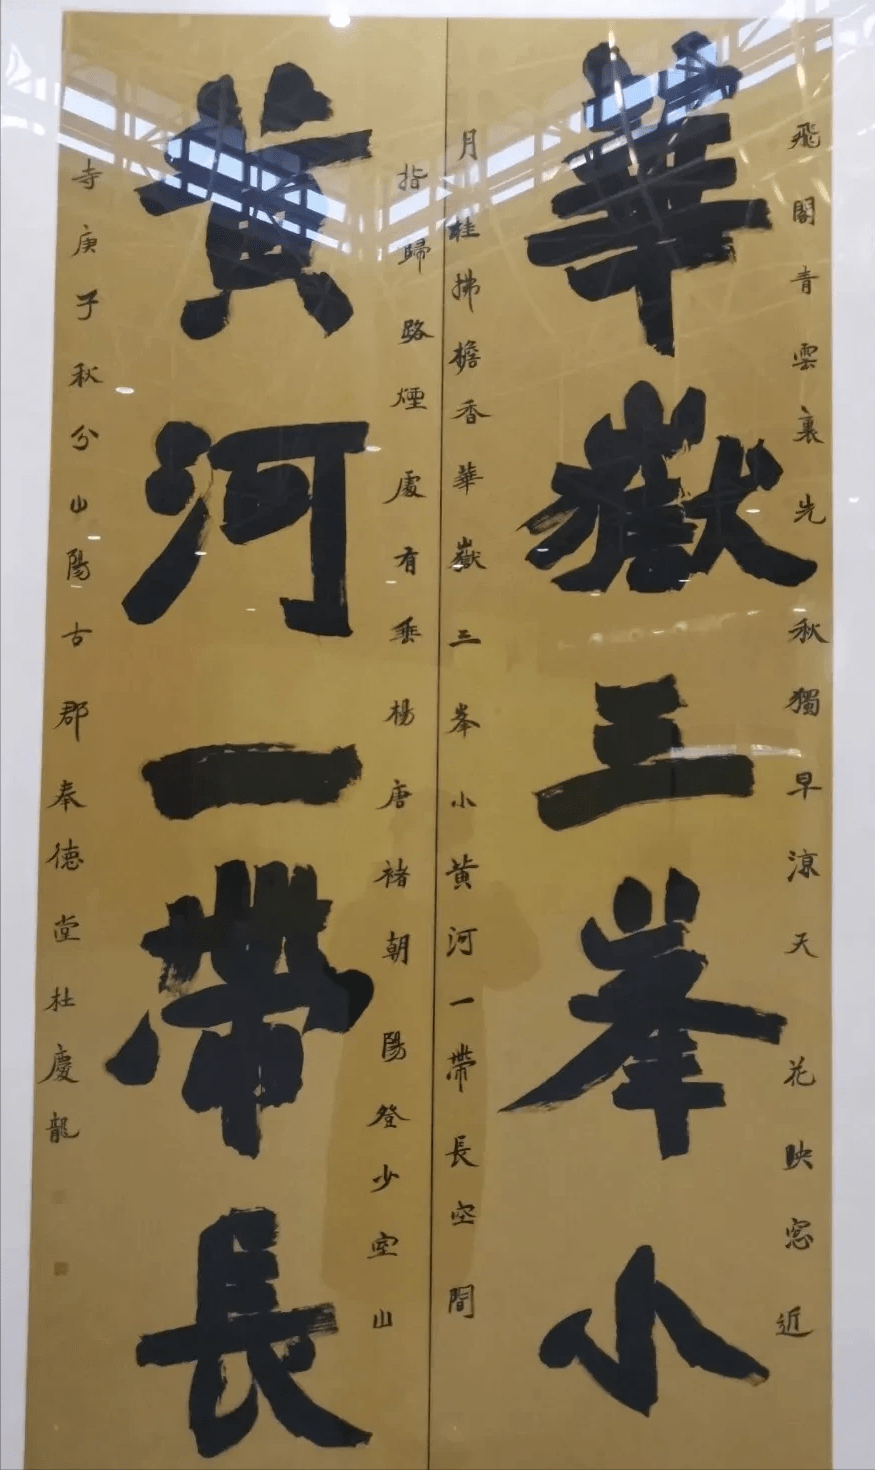 飛閣青雲裏先秋獨早涼天花映窓近
華嶽三峯小
月桂拂檐香華嶽三峯小黄河一帶長空間
指歸路煙處有垂楊唐褚朝陽登少室山
黄河一帶長
寺庚子秋分山陽古郡奉德堂杜慶龍